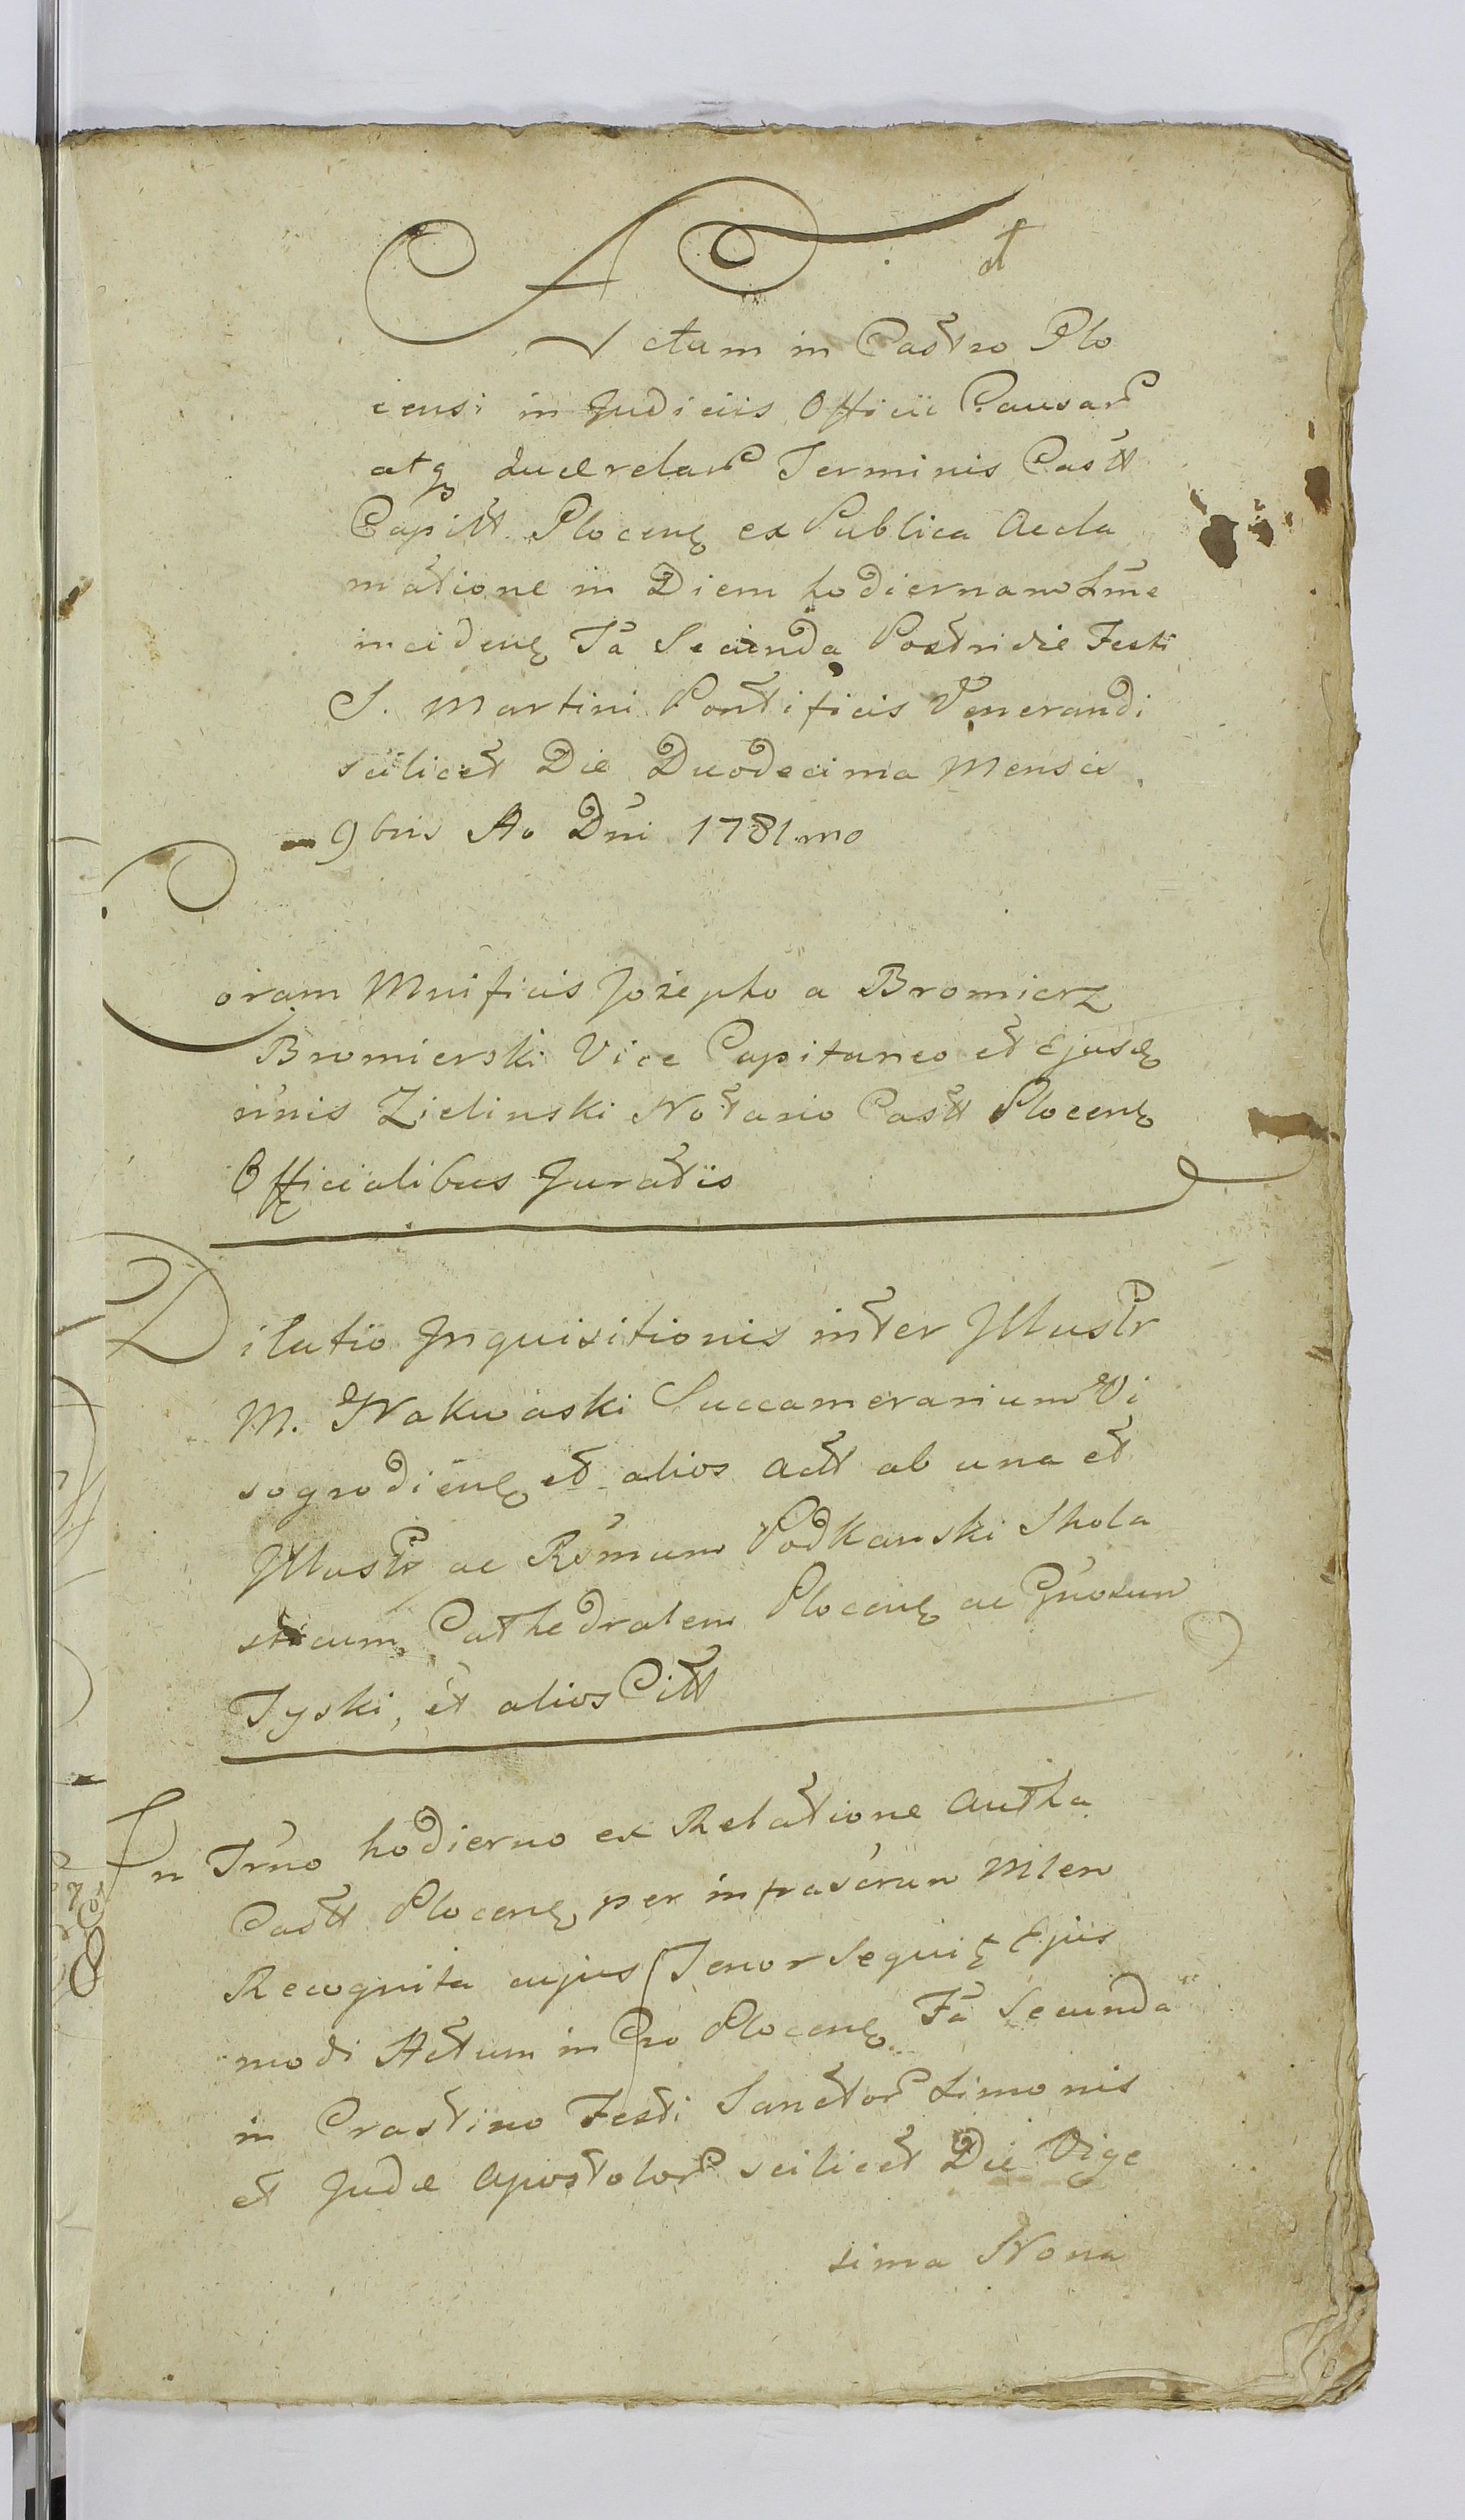 Actum in Castro Plo
censi in Judiciis Officii Causar
atq Quærelar Terminis Castt
Capitt. Plocen ex Publica Accla
matione in Diem hodiernam Lme
inciden Fa Secunda Postridie Festi
S. Martini Pontificis Venerandi
scilicet Die Duodecima Mensis
9bris Ao Dni 1781mo
Coram Mnificis Josepho a Bromierz
Bromierski Vice Capitaneo et Ejusd
nnis Zielinski Notario Castt Plocen
Officialibus Juratis
Dilatio Inquisitionis inter Illustr
M. Nakwaski Succamerarium Vi
sogrodien et alios Actt ab una et
Illustr ac Rdmum Podkanski Schola
sticum Cathedralem Plocen ac Gnosum
Tyski, et alios Citt
In Trno hodierno ex Relatione Autha
Castt Plocen per infrascrum Mlem
Recognita cujus Tenor Sequit Ejus
modi Actum in Cro Plocen Fa Secunda
in Crastino Festi Sanctor Simonis
et Judæ Apostolor scilicet Die Vige
sima Nona